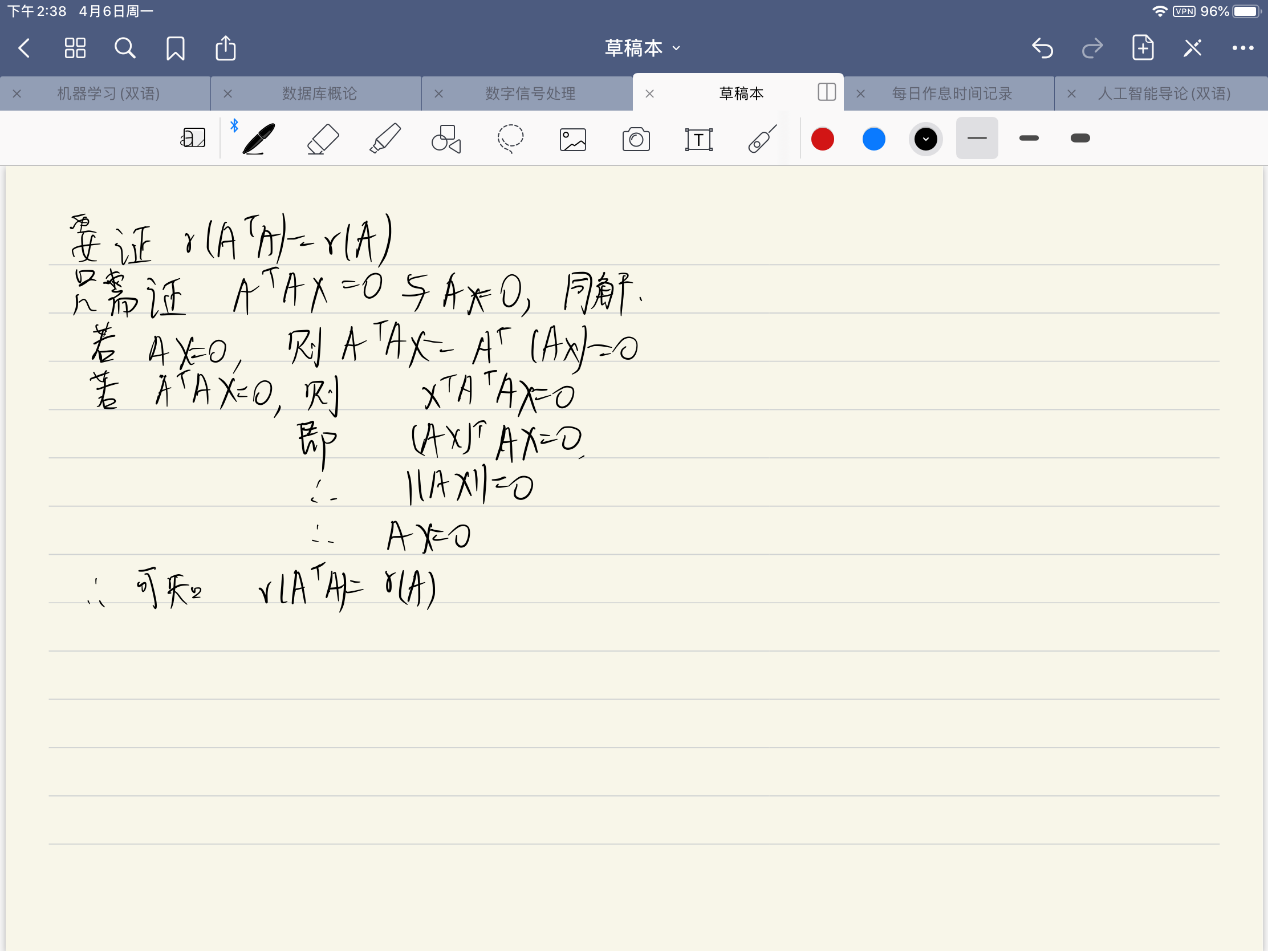 下午2:38 4月6日周一
VPN 96%
草稿本
机器学习(双语) 数据库概论 数字信号处理 草稿本 每日作息时间记录 人工智能导论(双语)
a T
要证 r(AᵀA)=r(A)
只需证 AᵀAx=0 与 Ax=0, 同解.
若 Ax=0, 则 AᵀAx=Aᵀ(Ax)=0
若 AᵀAx=0, 则 xᵀAᵀAx=0
即 (Ax)ᵀAx=0
∴ ||Ax||=0
∴ Ax=0
∴ 可知 r(AᵀA)=r(A)